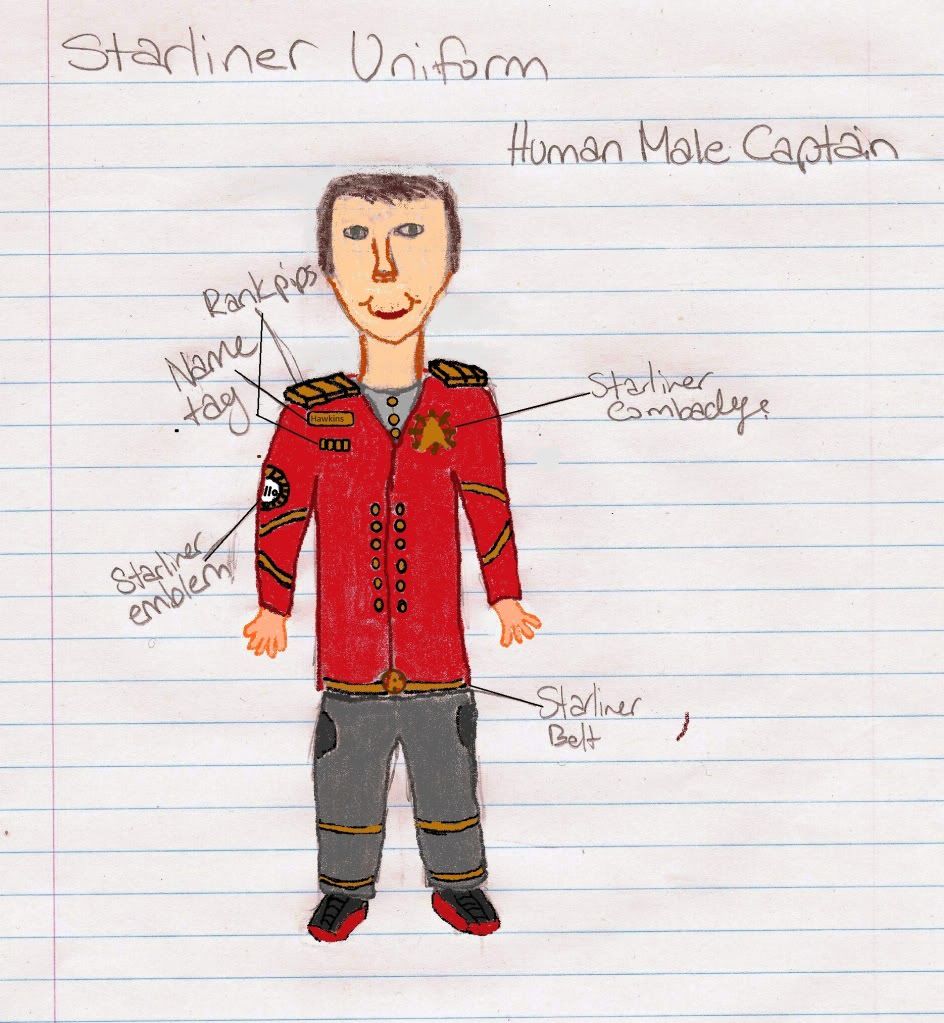 Starliner Uniform
Human Male Captain
Rank pips
Name
tag
Starliner
combadge
Hawkins
110
Starliner
emblem
Starliner
Belt